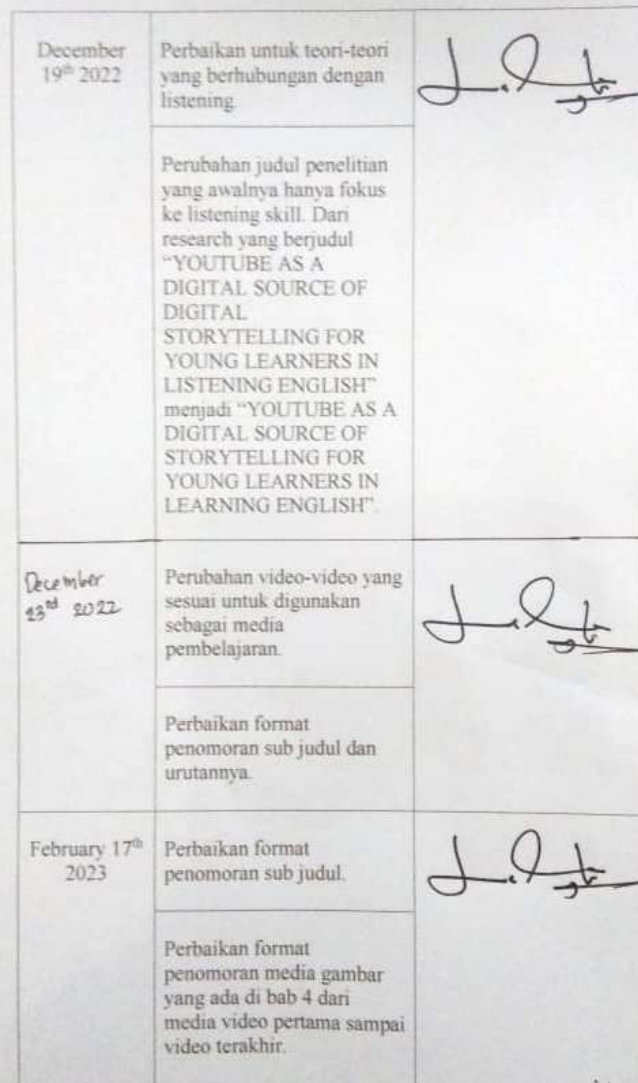 December
19th 2022
Perbaikan untuk teori-teori
yang berhubungan dengan
listening.
Perubahan judul penelitian
yang awalnya hanya fokus
ke listening skill. Dari
research yang berjudul
“YOUTUBE AS A
DIGITAL SOURCE OF
DIGITAL
STORYTELLING FOR
YOUNG LEARNERS IN
LISTENING ENGLISH”
menjadi “YOUTUBE AS A
DIGITAL SOURCE OF
STORYTELLING FOR
YOUNG LEARNERS IN
LEARNING ENGLISH”.
December
23rd 2022
Perubahan video-video yang
sesuai untuk digunakan
sebagai media
pembelajaran.
Perbaikan format
penomoran sub judul dan
urutannya.
February 17th
2023
Perbaikan format
penomoran sub judul.
Perbaikan format
penomoran media gambar
yang ada di bab 4 dari
media video pertama sampai
video terakhir.